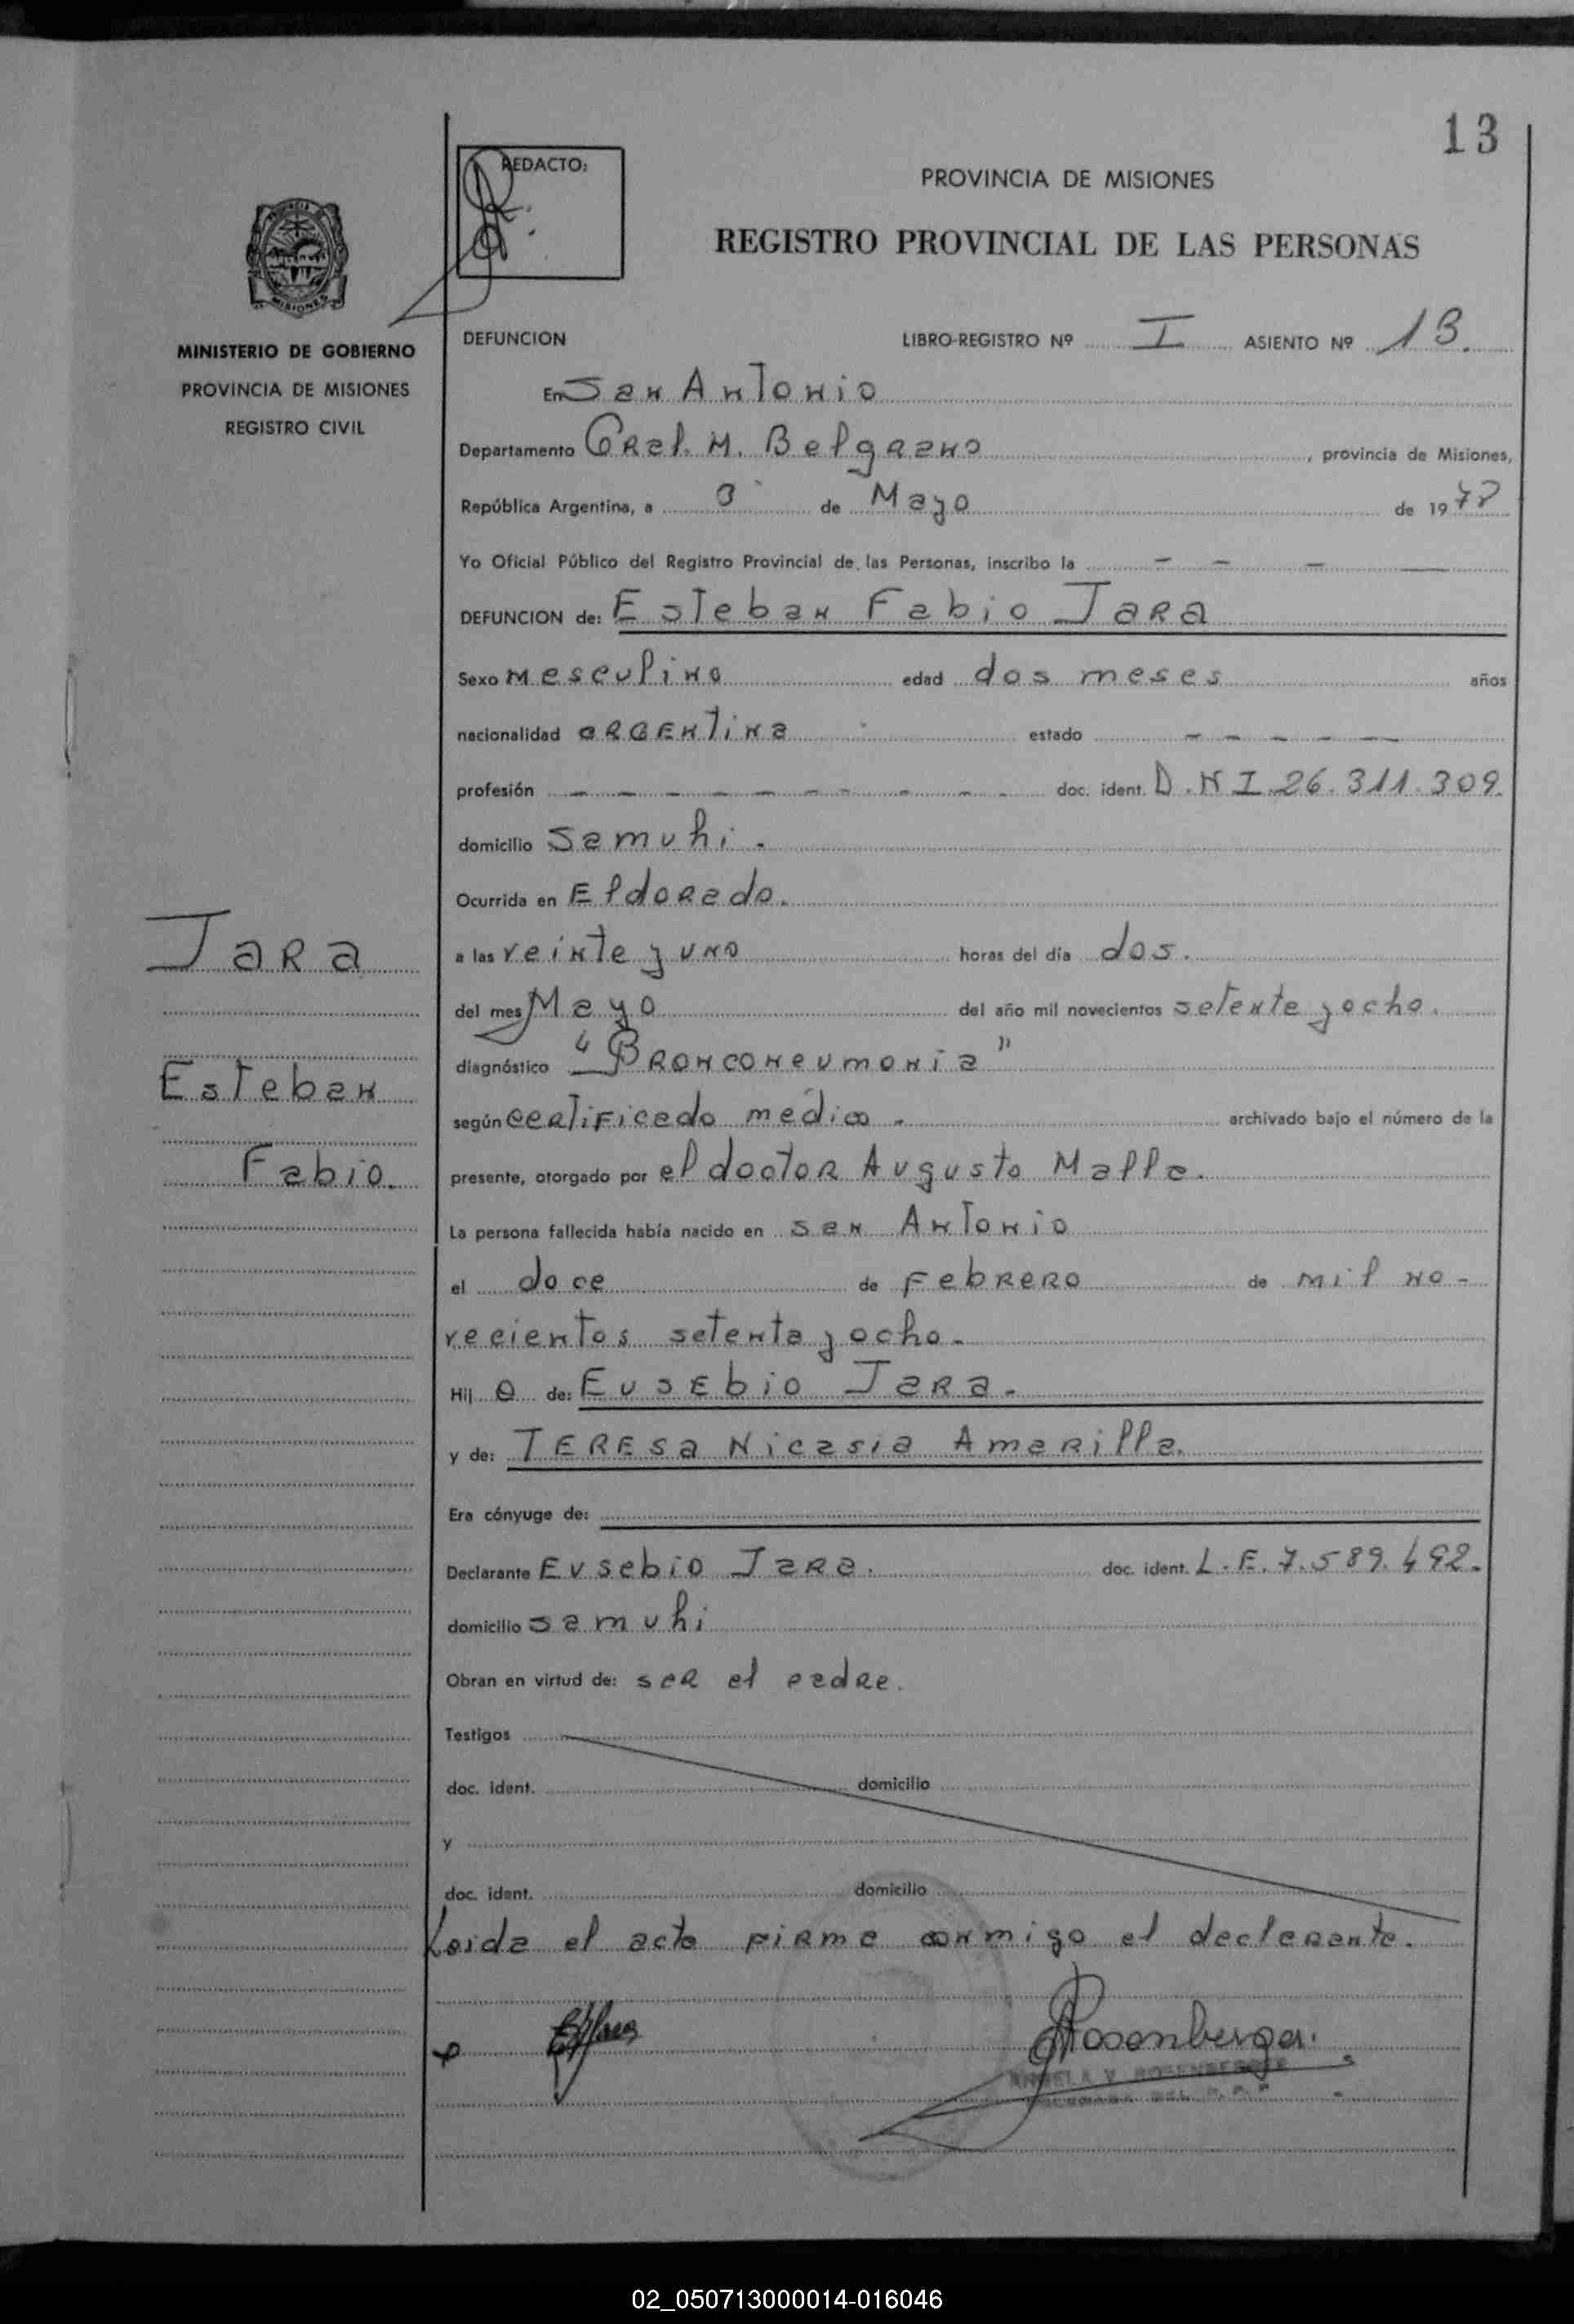 13
REDACTO:
PROVINCIA DE MISIONES
REGISTRO PROVINCIAL DE LAS PERSONAS
MINISTERIO DE GOBIERNO
PROVINCIA DE MISIONES
REGISTRO CIVIL
DEFUNCION LIBRO-REGISTRO Nº I ASIENTO Nº 13.
En San Antonio
Departamento Gral. M. Belgrano, provincia de Misiones,
República Argentina, a 3 de Mayo de 1978
Yo Oficial Público del Registro Provincial de las Personas, inscribo la - - - -
DEFUNCION de: Esteban Fabio Jara
Sexo masculino edad dos meses años
nacionalidad argentina estado - - - - -
profesión - - - - - - - - - doc. ident. D.N I 26.311.309.
domicilio Samuhi.
Ocurrida en Eldorado.
a las veinte y uno horas del día dos.
del mes Mayo del año mil novecientos setenta y ocho.
diagnóstico "Bronconeumonia"
según certificado medico. archivado bajo el número de la
presente, otorgado por el doctor Augusto Malla.
La persona fallecida había nacido en San Antonio
el doce de Febrero de mil no-
vecientos setenta y ocho-
Hij o de: Eusebio Jara.
y de: Teresa Nicasia Amarilla.
Era cónyuge de:
Declarante Eusebio Jara. doc. ident. L.E. 7.589.492.
domicilio Samuhi
Obran en virtud de: ser el padre.
Testigos
doc. ident. domicilio
y
doc. ident. domicilio
Leida el acta firma conmigo el declarante.
Jara
Esteban
Fabio.
EJara
Rosenberger.
ANGELA V. ROSENBERGER
02_050713000014-016046